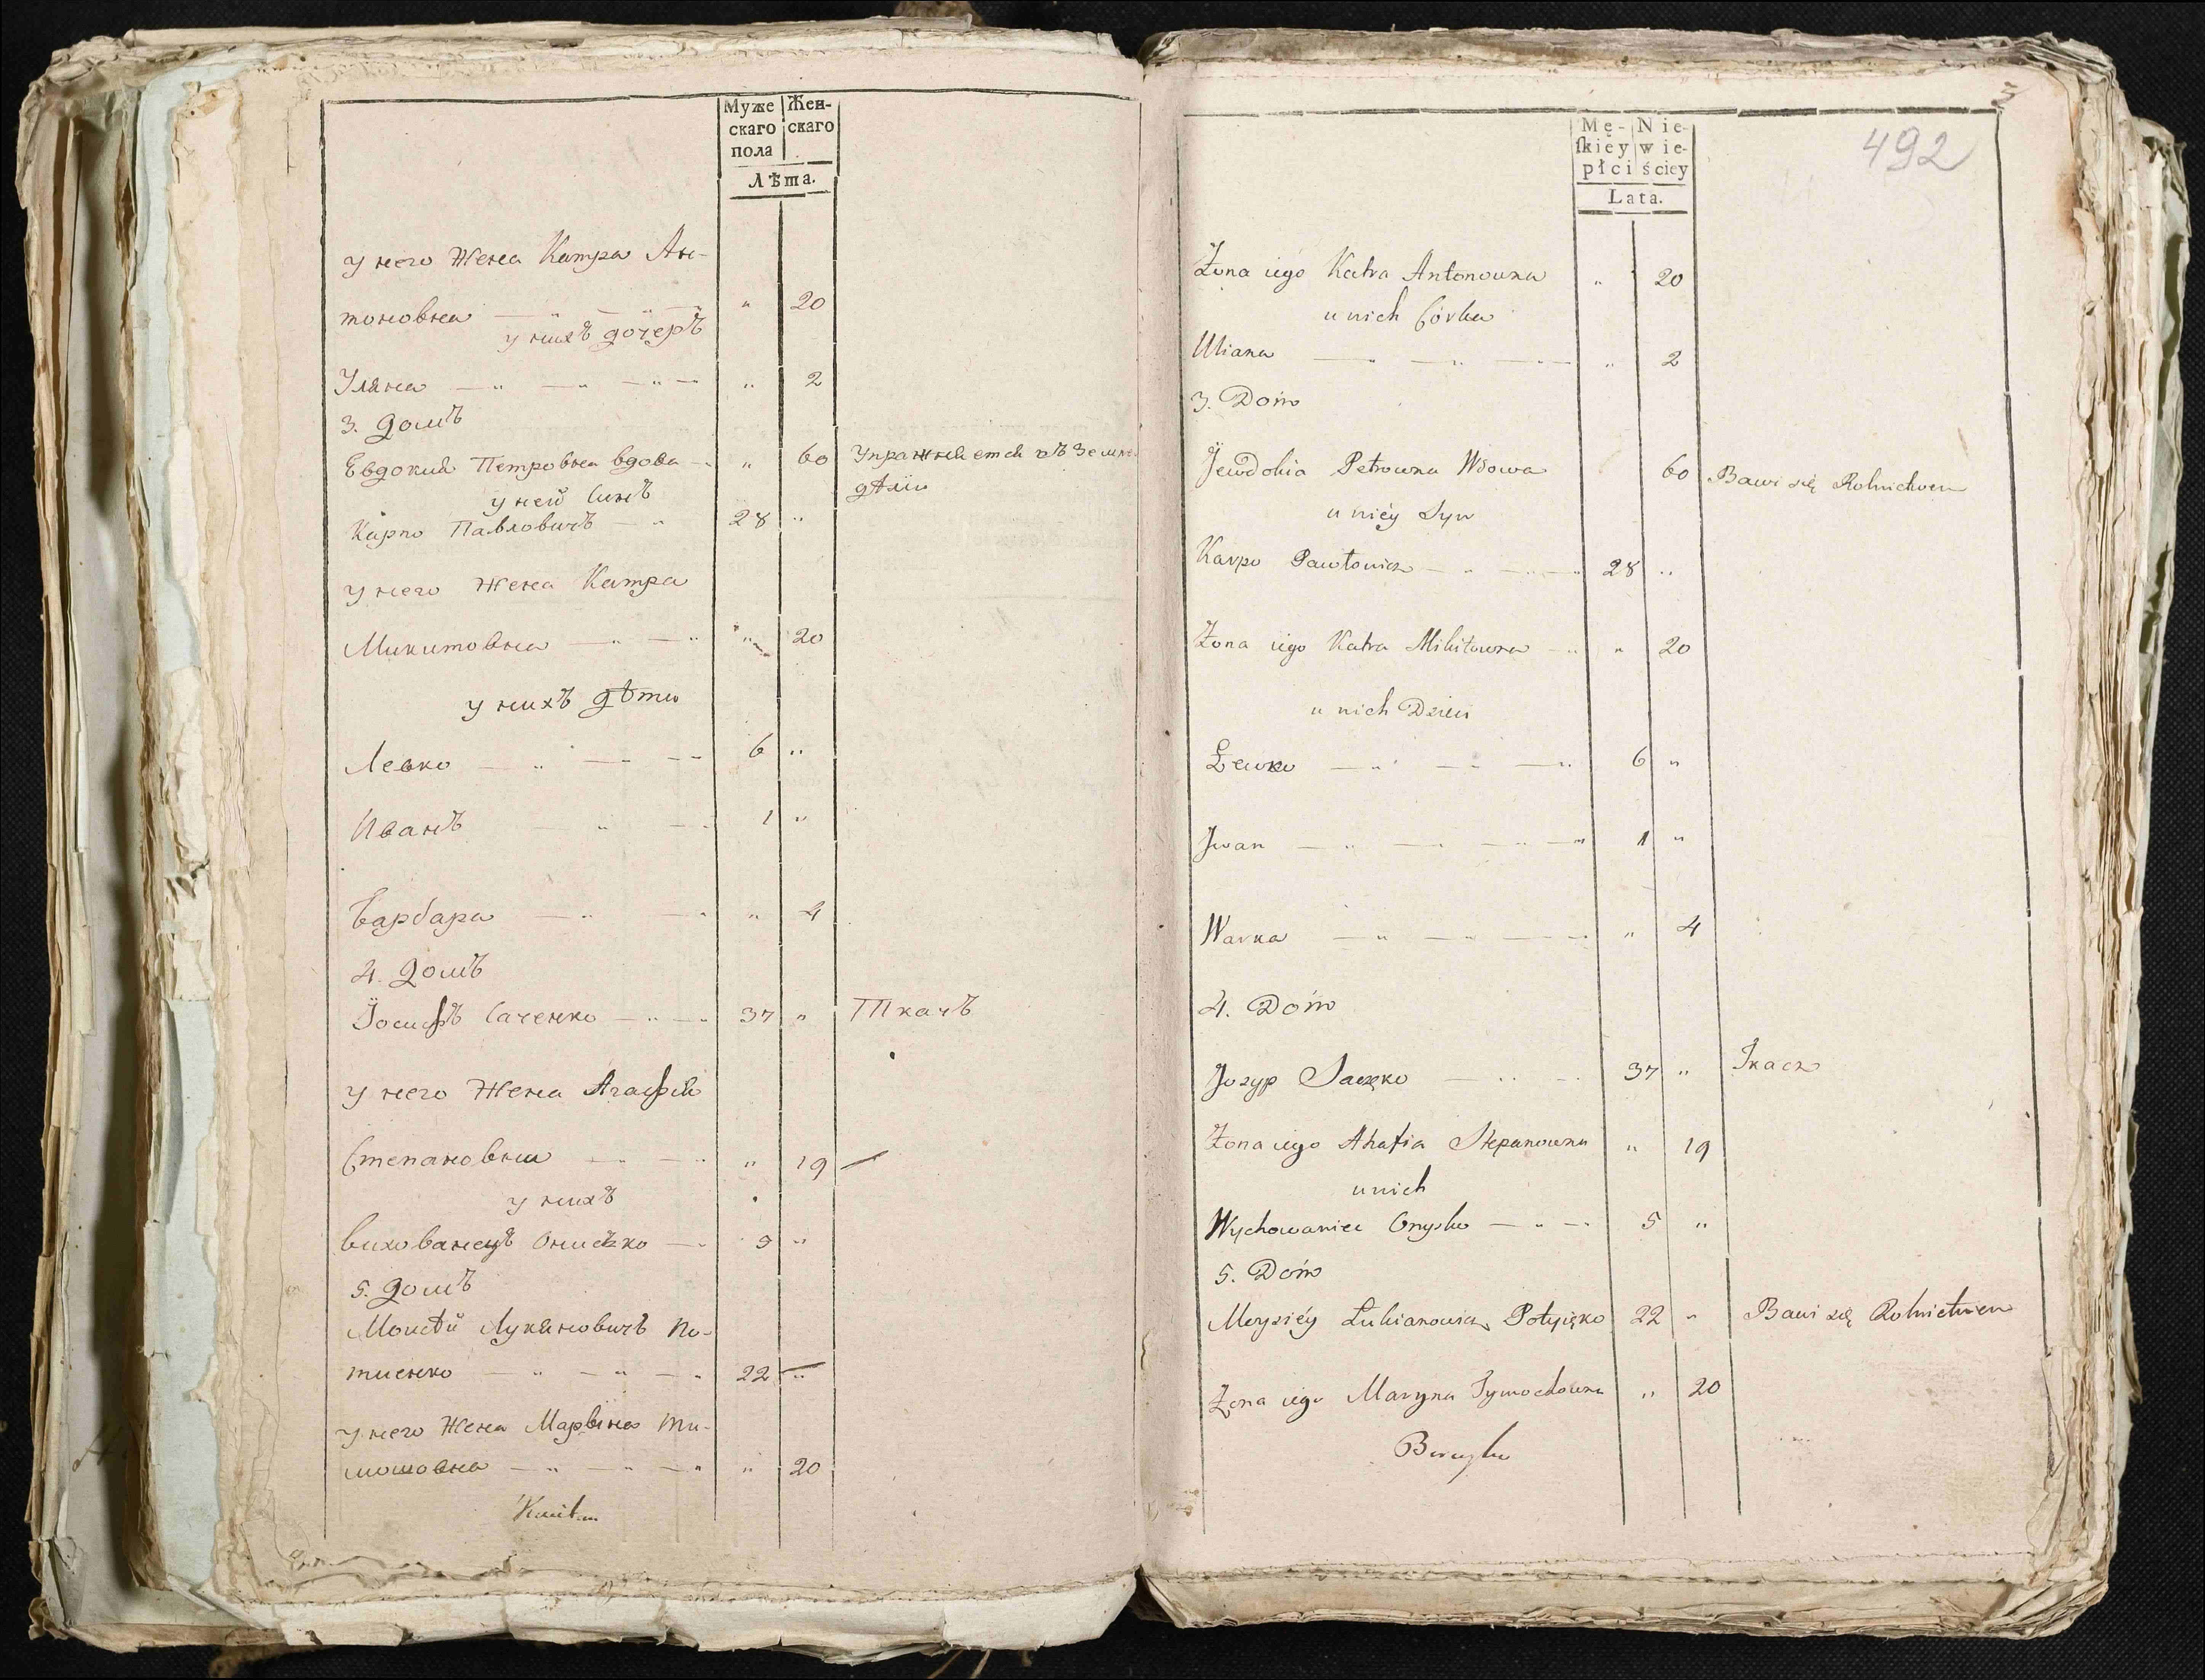 Муже Жен-
скаго скаго
пола
Лѣта.
у него Жена Катра Ан-
тоновна " 20
у нихъ дочеръ
Уляна " 2
3. Домъ
Евдокия Петровна вдова " 60 Упражняется въ Земле
дѣлiи
у ней Синъ
Карпо Павловичъ 28 "
у него Жена Катра
Микитовна " 20
у нихъ дѣти
Левко 6 "
Иванъ 1 "
Варвара " 4
4. Домъ
Iосифъ Саченко 37 " Ткачъ
у него Жена Агафия
Степановна " 19
у нихъ
вихованецъ Онисько 5 "
5. Домъ
Моисѣй Лукяновичъ По-
тиенко 22 "
у него Жена Марына Ти-
мошовна " 20
3
492
Mę- Nie-
ſkiey wie-
płci ściey
Lata.
Żona iego Katra Antonowna " 20
u nich Córka
Uliana " 2
3. Dom
Jewdokia Petrowna Wdowa 60 Bawi się Rolnictwem
u niéy Syn
Karpo Pawłowicz 28 "
Żona iego Katra Mikitowna " 20
u nich Dzieci
Lewko 6 "
Jwan 1 "
Warka " 4
4. Dom
Jozyp Saczęko 37 " Tkacz
Żona iego Ahafia Stepanowna " 19
u nich
Wychowaniec Onysko 5 "
5. Dom
Moysiéy Łukianowicz Potyięko 22 " Bawi się Rolnictwem
Żona iego Maryna Tymochowna " 20